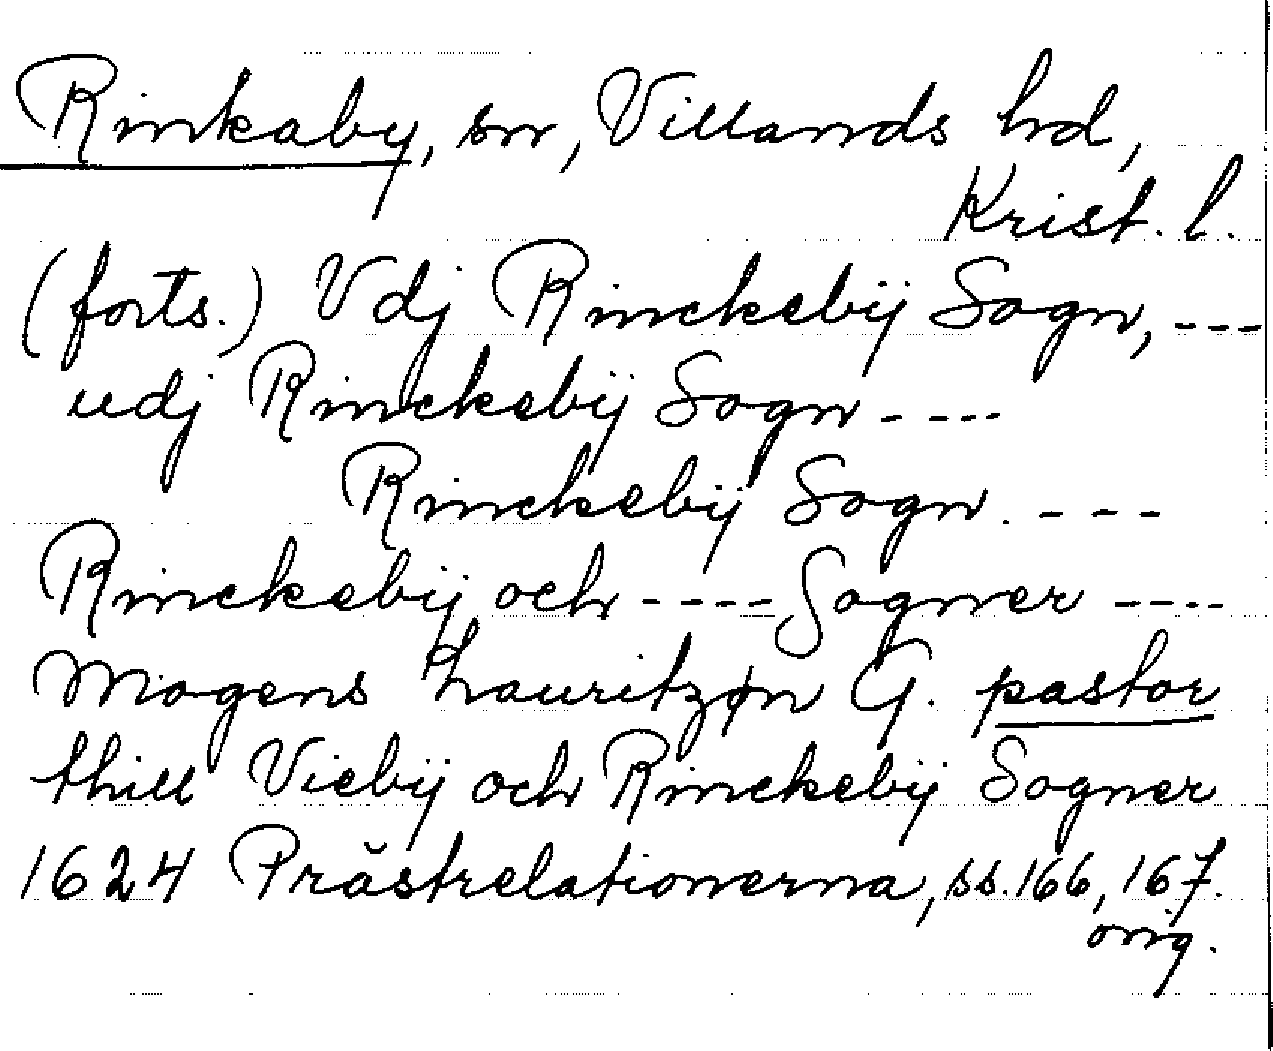 Rinkaby, sn, Villands hd,
Krist. l.
(forts.) Vdj Rinckebÿ Sogn, ---
udj Rinckebÿ Sogn ----
Rinckebÿ Sogn. ---
Rinckebÿ och ---- Sogner ----
Mogens Lauritzøn G. pastor
thill Viebÿ och Rinckebÿ Sogner
1624 Prästrelationerna, ss. 166, 167.
orig.